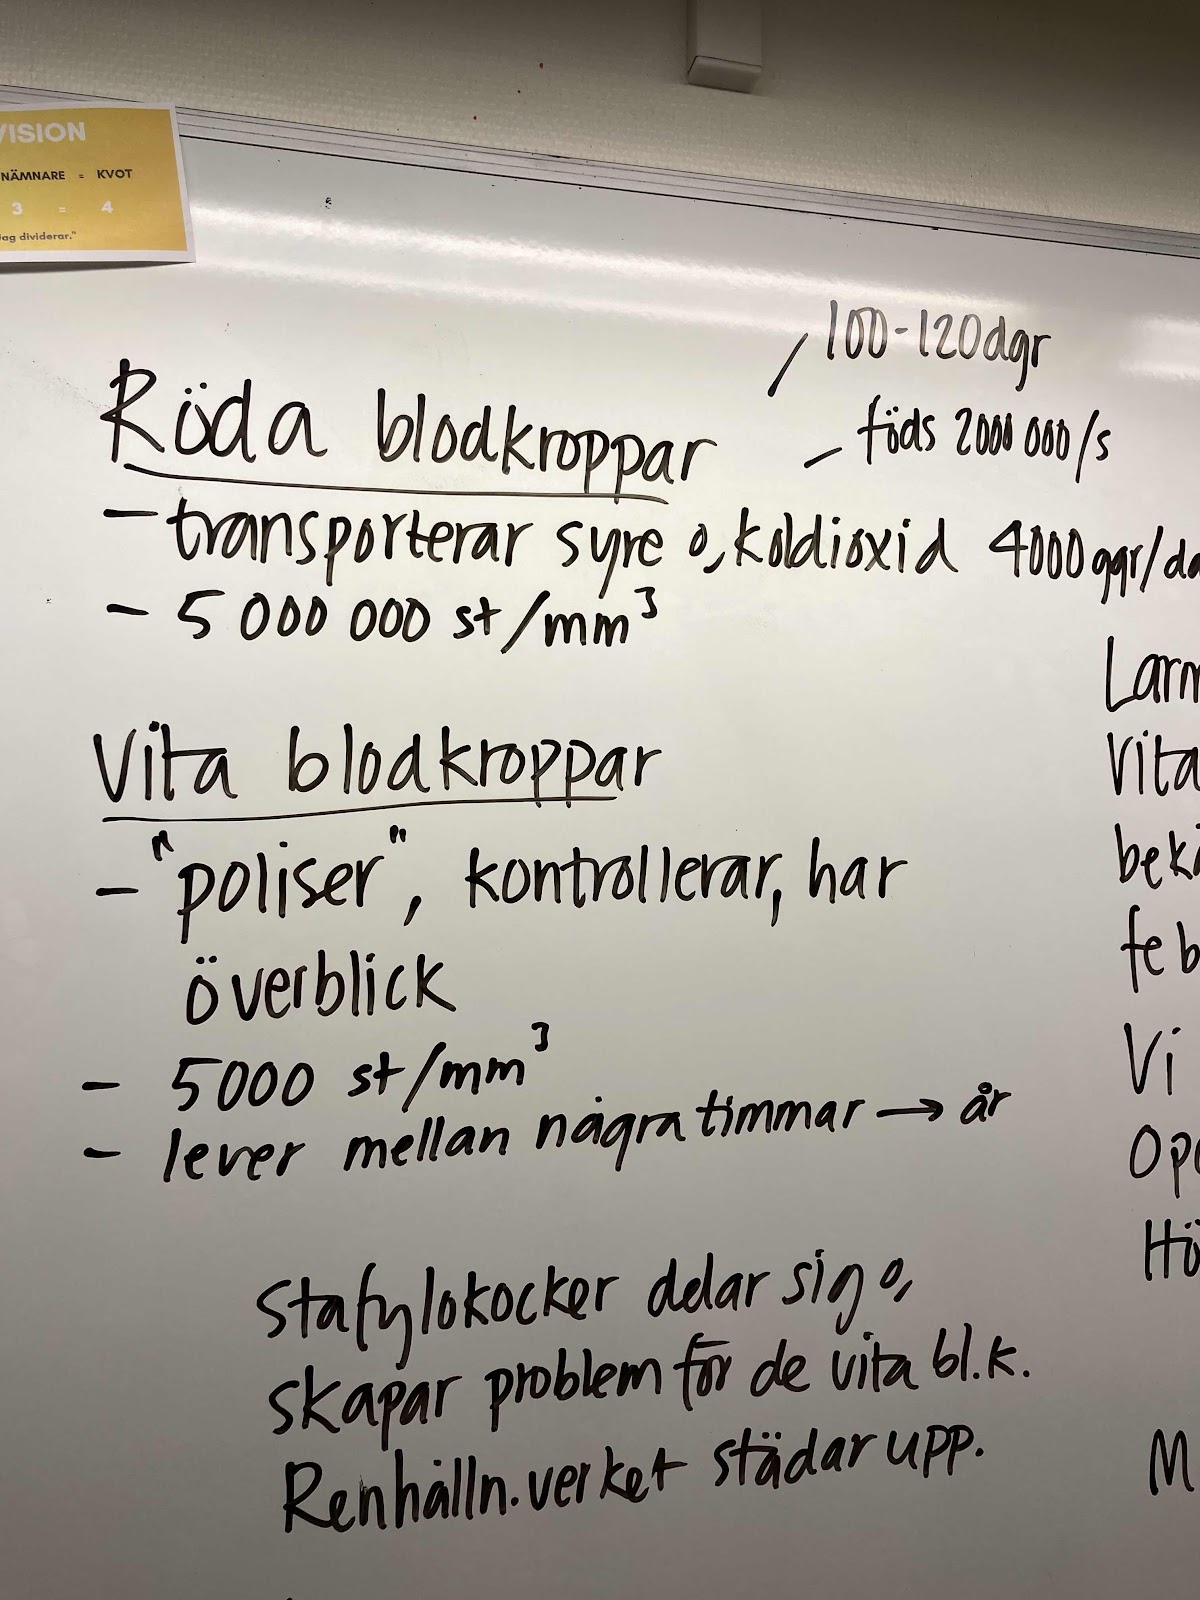 VISION
NÄMNARE = KVOT
3 = 4
dividerar."
100-120dgr
Röda blodkroppar
föds 2000 000/s
- transporterar syre o, koldioxid 4000 ggr/da
- 5 000 000 st/mm³
Vita blodkroppar
- "poliser", kontrollerar, har
överblick
- 5000 st/mm³
- lever mellan några timmar → år
Stafylokocker delar sig o,
skapar problem för de vita bl.k.
Renhålln.verket städar upp.
Larm
Vita
bekä
feb
Vi
Opo
Hö
M